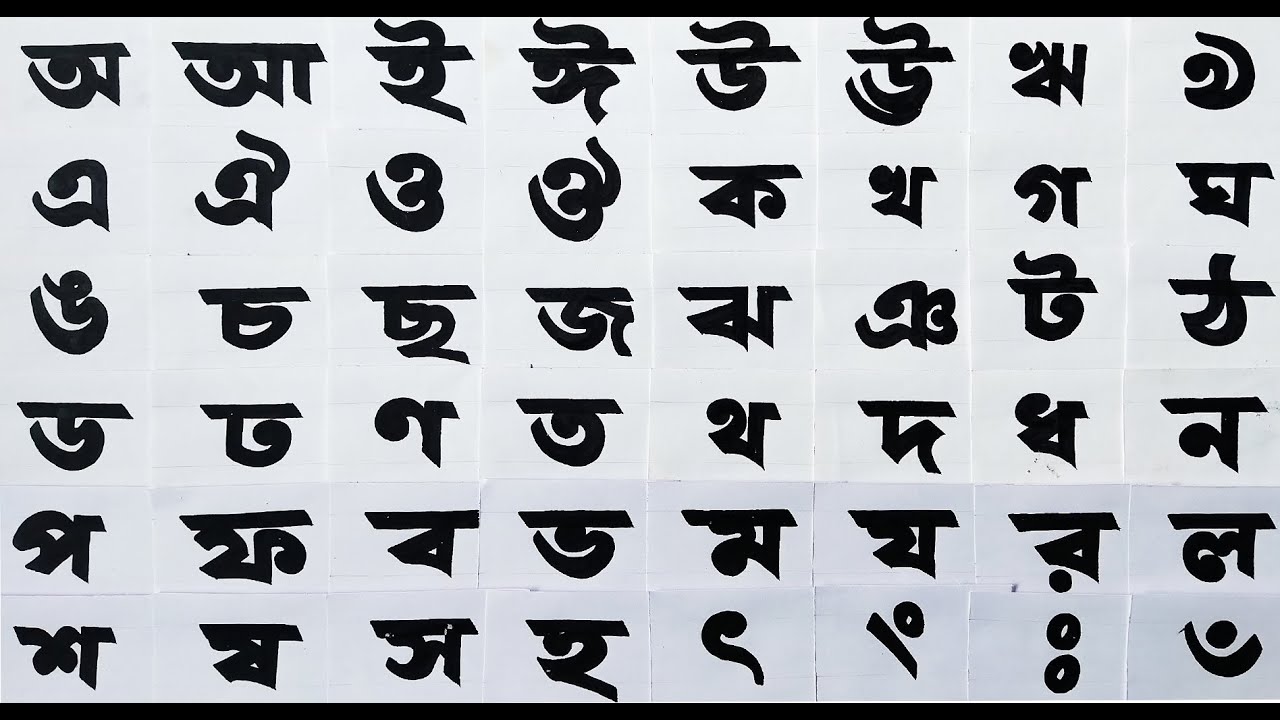 অ আ ই ঈ উ ঊ ঋ ঌ
এ ঐ ও ঔ ক খ গ ঘ
ঙ চ ছ জ ঝ ঞ ট ঠ
ড ঢ ণ ত থ দ ধ ন
প ফ ব ভ ম য র ল
শ ষ স হ ৎ ং ঃ ঁ